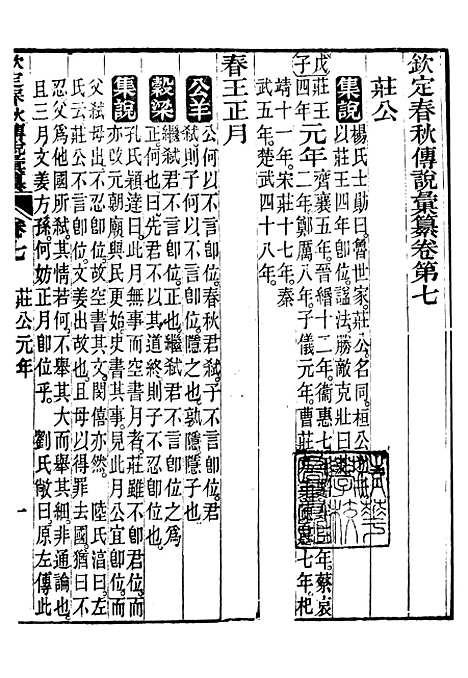 欽定春秋傳說彙纂卷第七
莊公
集說 楊氏士勛曰魯世家莊公名同桓公
以莊王四年即位諡法勝敵克壯曰
戊子 莊王四年 元年 齊襄五年晉緡十二年衞惠七年蔡哀
二年鄭厲八年子儀元年曹莊
七年杞
靖十一年宋莊十七年秦
武五年楚武四十八年
春王正月
公羊 公何以不言即位春秋君弒子不言即位君
弒則子何以不言即位隱之也孰隱隱子也
穀梁 繼弒君不言即位正也繼弒君不言即位之為
正何也曰先君不以其道終則子不忍即位也
集說 孔氏穎達曰此月無事而空書月者莊雖不即君位而
亦改元朝廟與民更始史書其事見此月公宜即位而
父弒母出不忍即位故空書其文閔僖亦然 陸氏淳曰左
氏云莊公不言即位文姜出故也且母以得罪去國猶曰不
忍父為他國所弒其情若何不舉其大而舉其細非通論也
且三月文姜方孫何妨正月即位乎 劉氏敞曰原左傳此
欽定春秋傳說彙纂 卷七 莊公元年 一